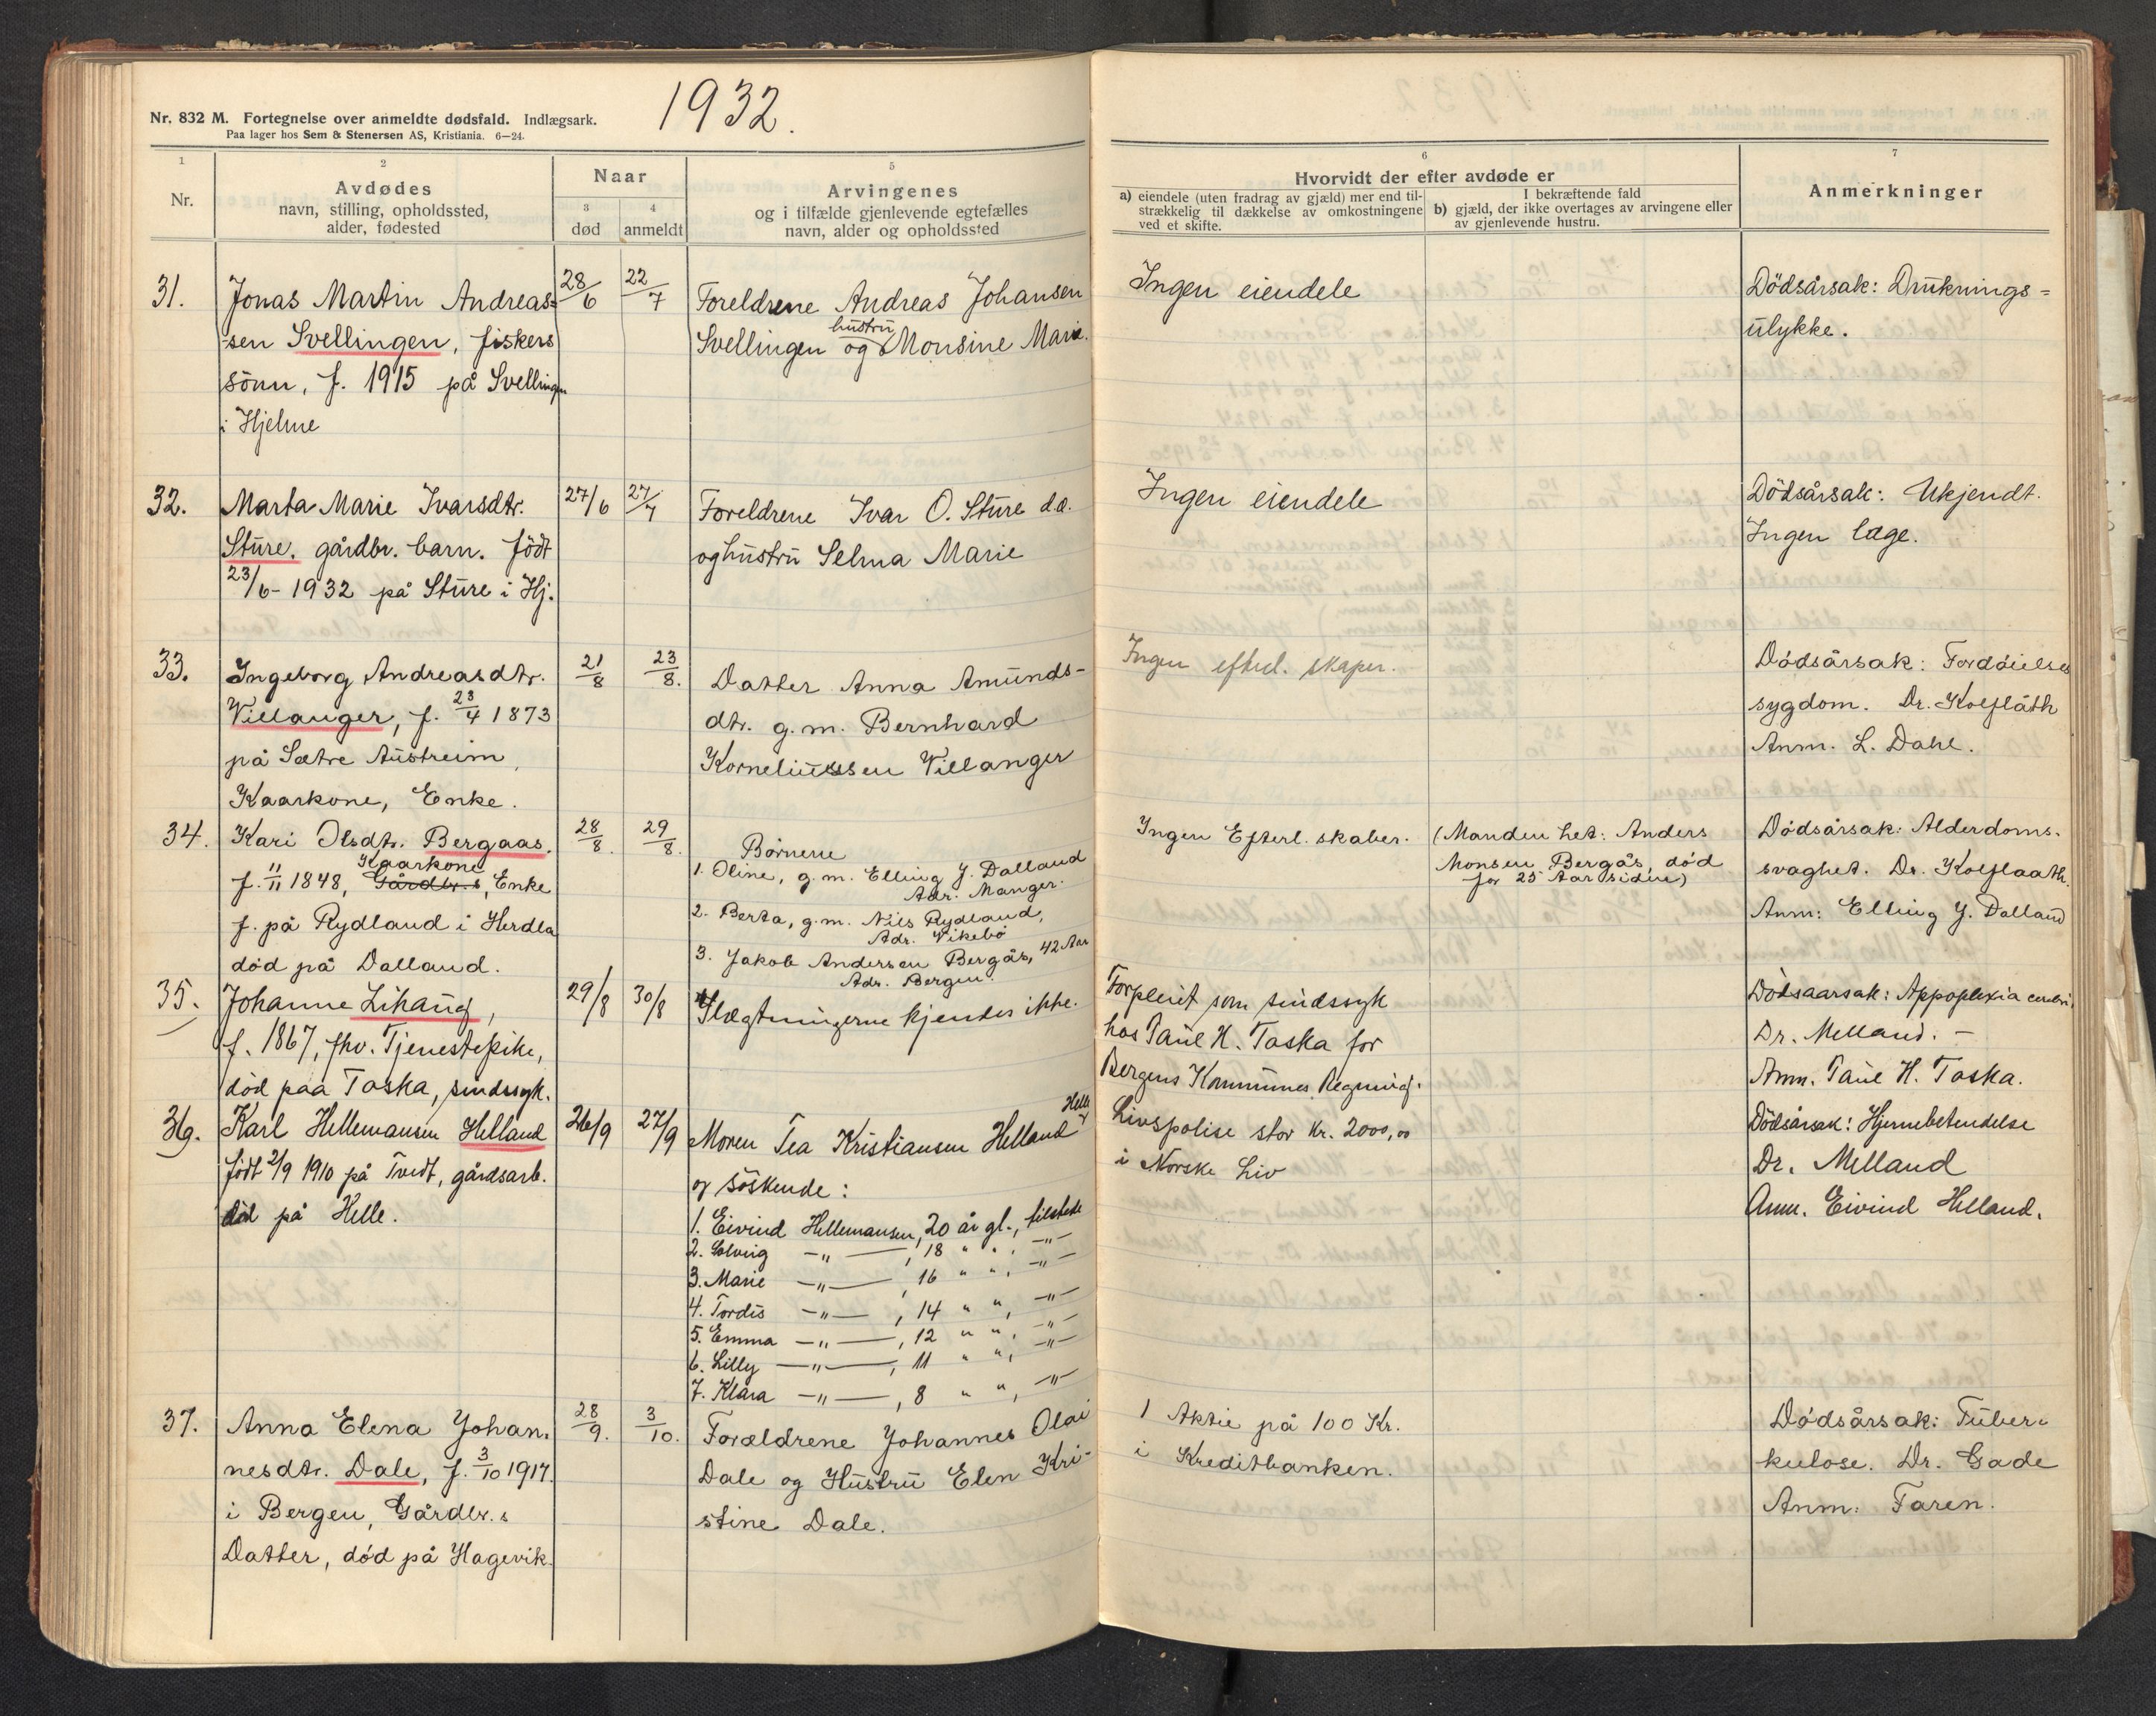 1932.
Nr. 832 M. Fortegnelse over anmeldte dødsfald. Indlægsark.
Paa lager hos Sem & Stenersen AS, Kristiania. 6—24.
1
Nr.
2
Avdødes
navn, stilling, opholdssted,
alder, fødested
Naar
3
død
4
anmeldt
5
Arvingenes
og i tilfælde gjenlevende egtefælles
navn, alder og opholdssted
6
Hvorvidt der efter avdøde er
a) eiendele (uten fradrag av gjæld) mer end til-
strækkelig til dækkelse av omkostningene
ved et skifte.
I bekræftende fald
b) gjæld, der ikke overtages av arvingene eller
av gjenlevende hustru.
7
Anmerkninger
31.
Jonas Martin Andreas=
sen Svellingen, fiskers
sönn, f. 1915 på Svellingen
i Hjelme
28/6
22/7
Foreldrene Andreas Johansen
Svellingen og hustru Monsine Marie.
Ingen eiendele
Dödsårsak: Druknings=
ulykke.
32.
Marta Marie Ivarsdtr.
Sture. gårdbr. barn. födt
23/6 - 1932 på Sture i Hj.
27/6
27/7
Foreldrene Ivar O. Sture d.a.
og hustru Selma Marie
Ingen eiendele
Dödsårsak: Ukjendt.
Ingen læge.
33.
Ingeborg Andreasdtr.
Villanger, f. 23/4 1873
på Sætre Austreim,
Kaarkone, Enke.
21/8
23/8.
Datter Anna Amunds-
dtr. g.m. Bernhard
Korneliussen Villanger
Ingen efterl. skaper.
Dödsårsak: Fordöielses
sygdom. Dr. Kolflåth
Anm. L. Dahl.
34.
Kari Olsdtr. Bergaas.
Kaarkone
f. 11/11 1848, Gårdbr.s, Enke
f. på Rydland i Herdla
död på Dalland.
28/8.
29/8.
Börnene
1. Oline, g.m. Elling J. Dalland
Adr. Manger.
2. Berta, g.m. Nils Rydland,
Adr. Vikebö
3. Jakob Andersen Bergås, 42 Aar
Adr. Bergen.
Ingen Efterl. skaber.
(Manden het: Anders
Monsen Bergås, död
for 25 Aar siden)
Dödsårsak: Alderdoms-
svaghet. Dr. Kolflaath.
Anm: Elling J. Dalland
35.
Johanne Lihaug,
f. 1867, fhv. Tjenestepike,
död paa Toska, sindssyk.
29/8
30/8
Slægtningerne kjendes ikke.
Forpleiet som sindssyk
hos Paul H. Toska for
Bergens Kommunes Regning.
Dödsaarsak: Appoplexia cerebri
Dr. Melland. —
Anm. Paul H. Toska.
36.
Karl Hellemansen Helland
født 2/9 1910 på Tvedt, gårdsarb.
död på Helle.
26/9
27/9
Moren Tea Kristiansen Helland Helle
og söskende:
1. Eivind Hellemansen, 20 år gl., tilstede
2. Solveig —"—, 18 " ", —"—
3. Marie —"—, 16 " ", —"—
4. Tordis —"—, 14 " ", —"—
5. Emma —"—, 12 " ", —"—
6. Lilly —"—, 11 " ", —"—
7. Klara —"—, 8 " ", —"—
Livspolise stor Kr. 2000,00
i Norske Liv
Dödsårsak: Hjernebetendelse
Dr. Melland
Anm. Eivind Helland.
37.
Anna Elena Johan-
nesdtr. Dale, f. 3/10 1917.
i Bergen, Gårdbr.s
Datter, död på Hagevik.
28/9.
3/10.
Forældrene Johannes Olai
Dale og Hustru Elen Kri-
stine Dale.
1 Aktie på 100 Kr.
i Kreditbanken.
Dödsårsak: Tuber-
kulose. Dr. Gade
Anm: Faren.